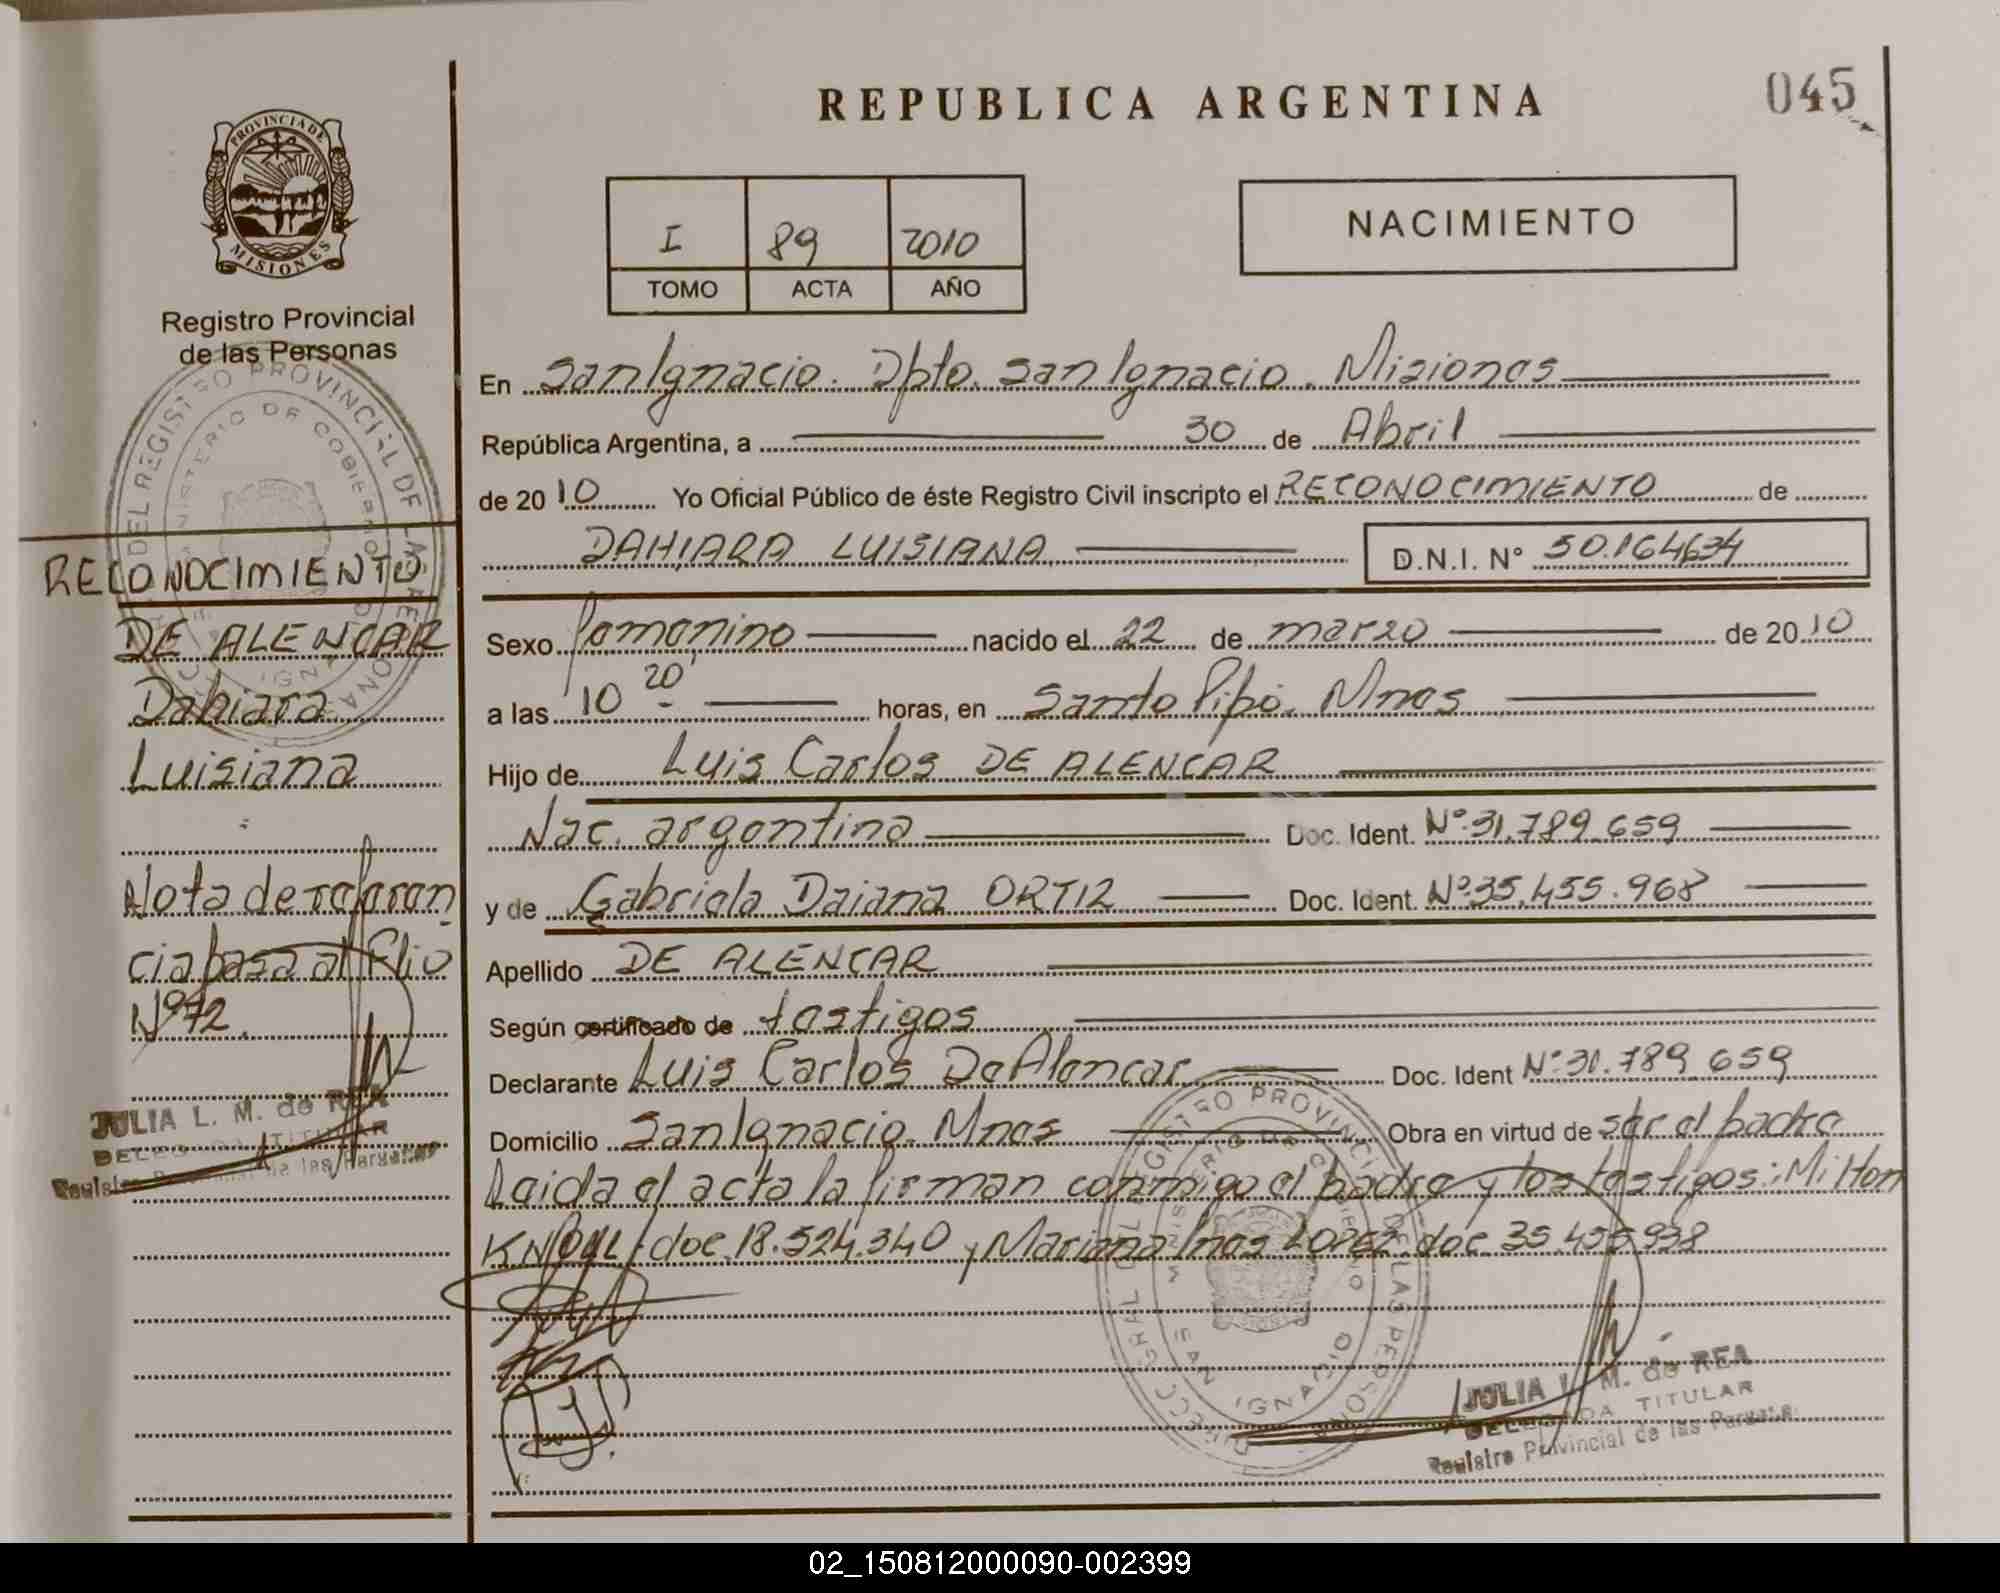 045
REPUBLICA ARGENTINA
PROVINCIA DE
MISIONES
Registro Provincial
de las Personas
I 89 2010
TOMO ACTA AÑO
NACIMIENTO
En San Ignacio. Dpto. San Ignacio. Misiones
República Argentina, a 30 de Abril
de 2010 Yo Oficial Público de éste Registro Civil inscripto el RECONOCIMIENTO de
DAHIARA LUISIANA D.N.I. N° 50.164634
Sexo femenino nacido el 22 de marzo de 2010
a las 10 20' horas, en Santo Pipó. Mnes
Hijo de Luis Carlos DE ALENCAR
Nac. argentina Doc. Ident. N° 31.789.659
y de Gabriela Daiana ORTIZ Doc. Ident. N° 35.455.968
Apellido DE ALENCAR
Según certificado de testigos
Declarante Luis Carlos De Alencar Doc. Ident N° 31.789.659
Domicilio San Ignacio. Mnes Obra en virtud de ser el padre
Leida el acta la firman conmigo el padre y los testigos: Milton
doc. 18.524.340 y Mariana Ines LOPEZ doc. 35.455.938
RECONOCIMIENTO
DE ALENCAR
Dahiara
Luisiana
Nota de referen
cia pasa al Flio
N° 72.
JULIA L. M. de REA
DELEGADA TITULAR
Registro Provincial de las Personas
JULIA L. M. de REA
DELEGADA TITULAR
Registro Provincial de las Personas
DIRECC. GRAL. DEL REGISTRO PROVINCIAL DE LAS PERSONAS
MINISTERIO DE GOBIERNO
SAN IGNACIO
02_150812000090-002399